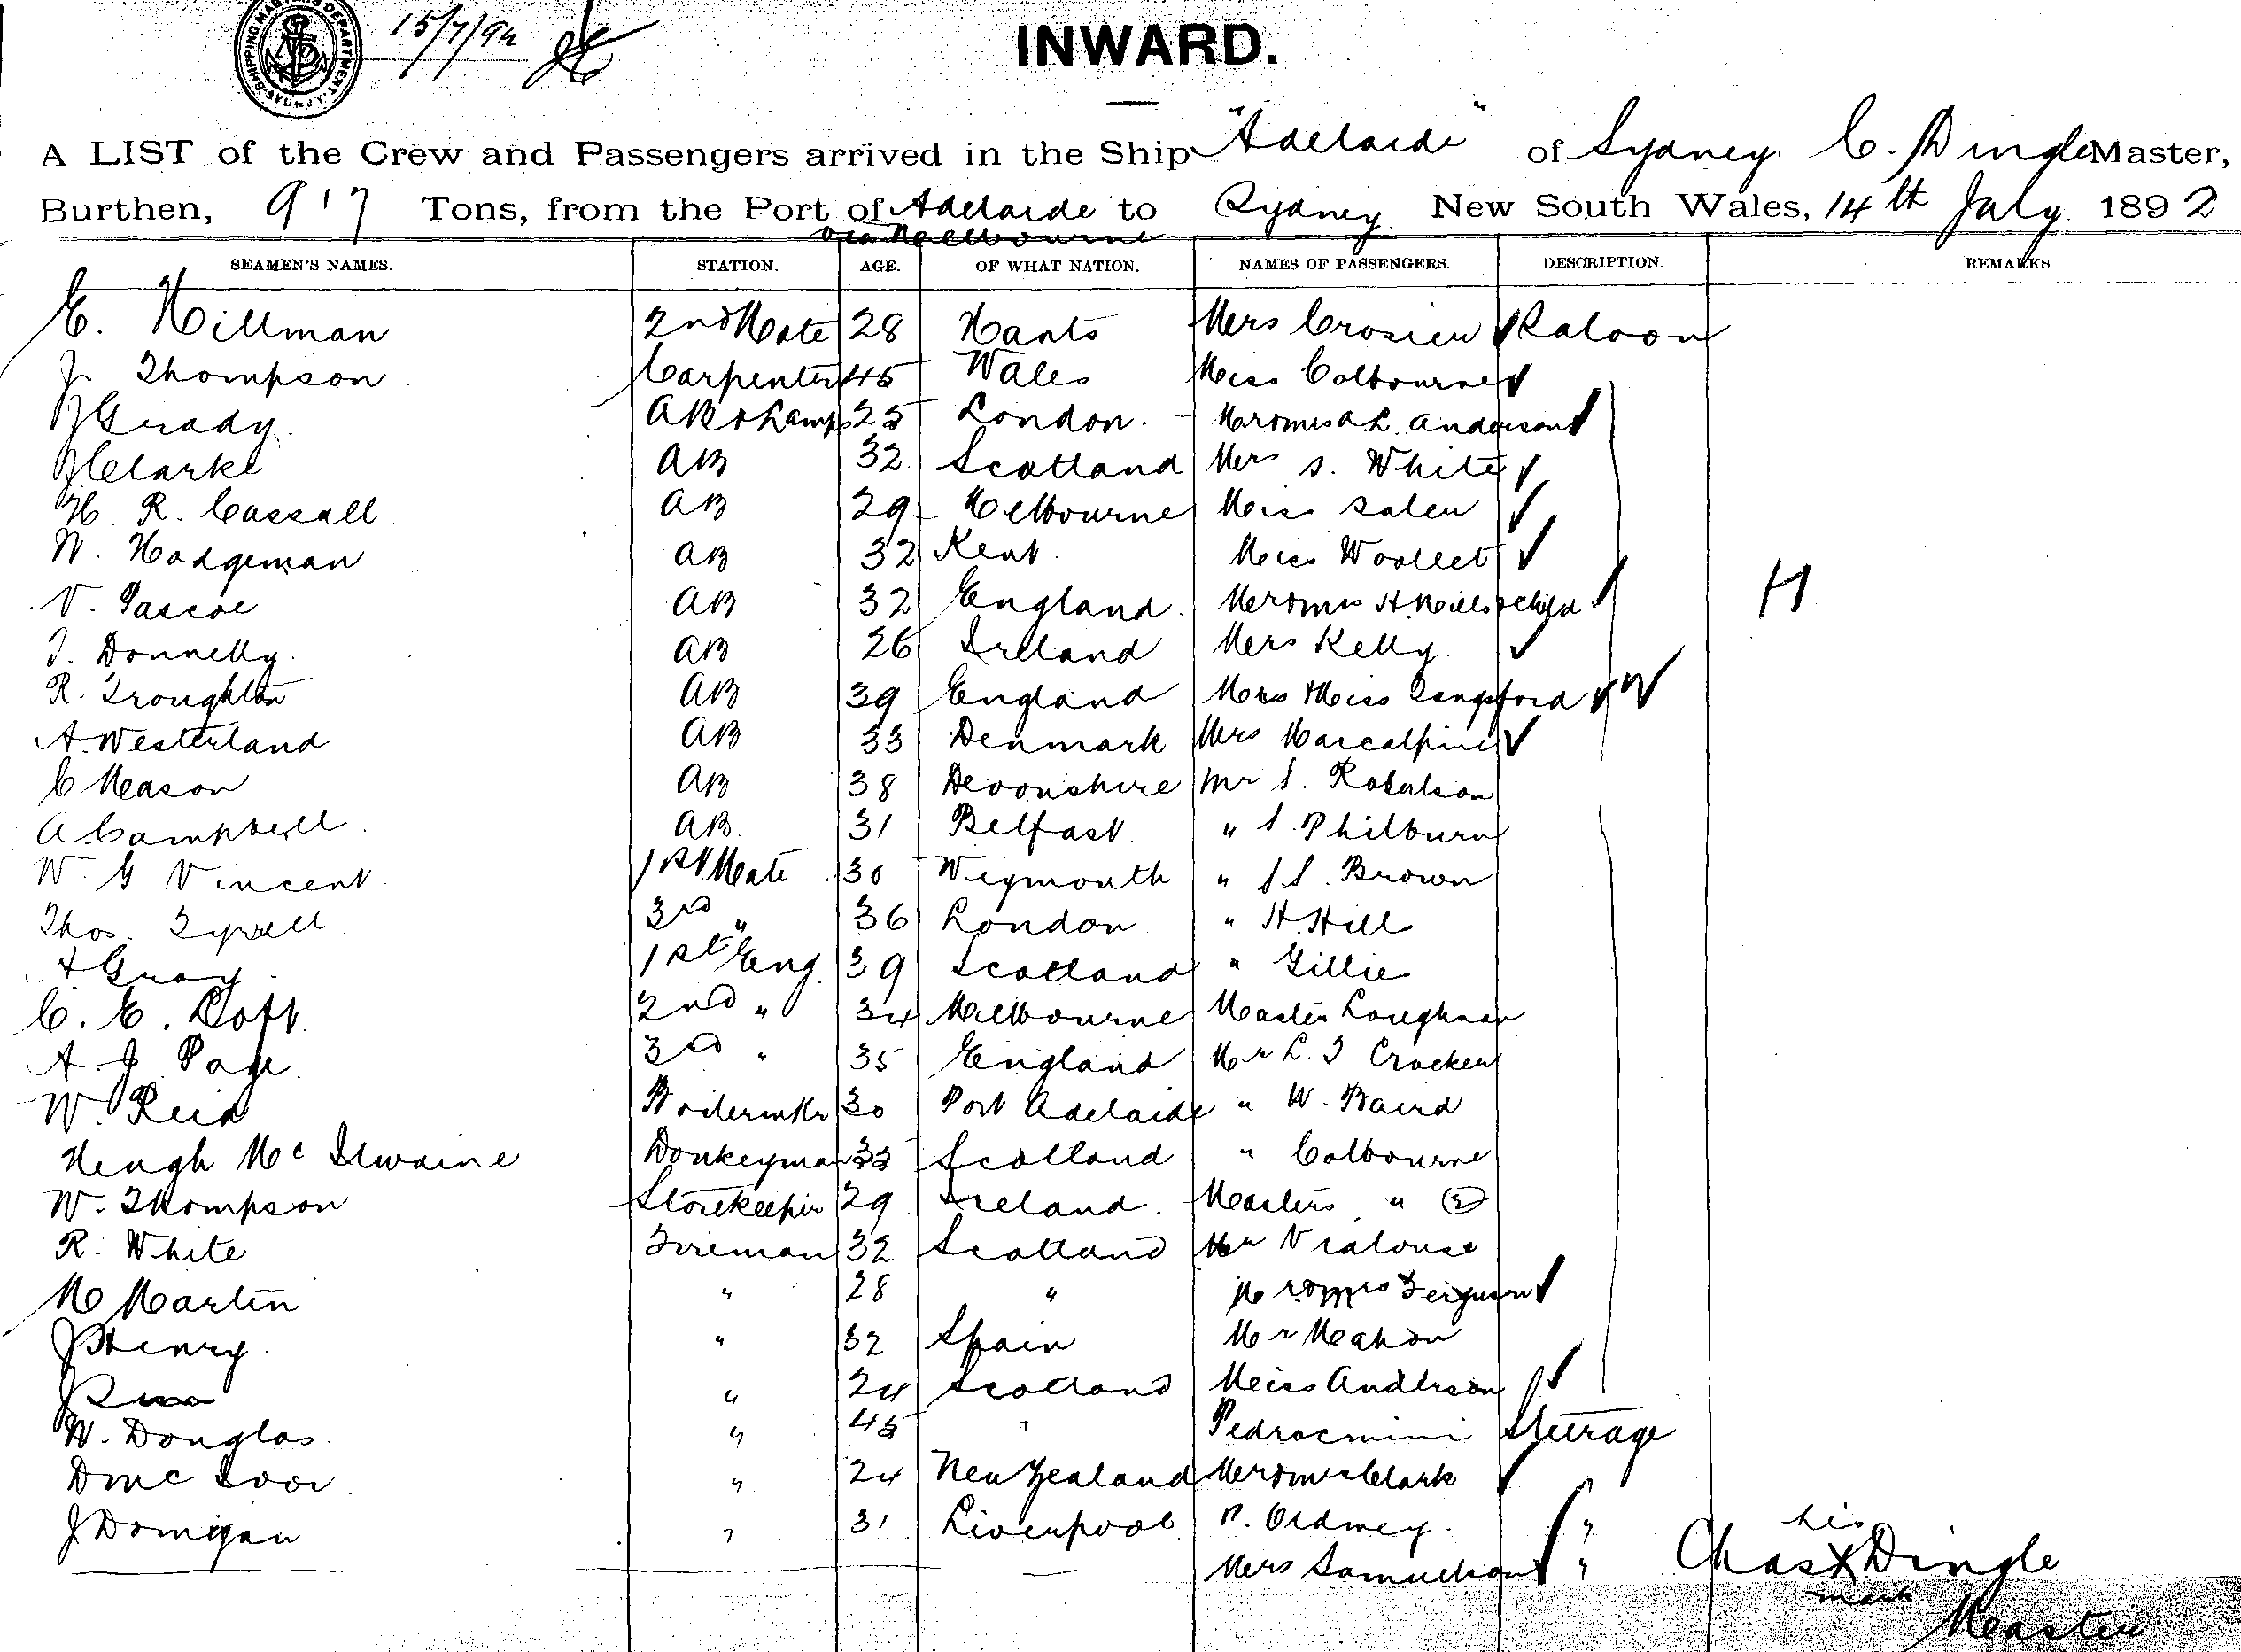 SHIPPING MASTER'S DEPARTMENT
15/7/92
INWARD.
A LIST of the Crew and Passengers arrived in the Ship "Adelaide" of Sydney C. Dingle Master,
Burthen, 917 Tons, from the Port of Adelaide to Sydney New South Wales, 14th July 1892
via Melbourne
SEAMEN'S NAMES. STATION. AGE. OF WHAT NATION. NAMES OF PASSENGERS. DESCRIPTION. REMARKS.
E. Hillman 2nd Mate 28 Hants Mrs Crosier Saloon
J Thompson Carpenter 45 Wales Miss Colbourne
J Grady AB & Lamps 25 London Mr & Mrs A L Anderson
J Clarke AB 32 Scotland Mrs S. White
H. R. Cassall AB 29 Melbourne Miss Salew
W. Hodgeman AB 32 Kent Miss Woollet
V. Pascoe AB 32 England Mr & Mrs H. Mills & child H
J. Donnelly AB 26 Ireland Mrs Kelly
R. Troughton AB 39 England Mrs & Miss
A. Westerland AB 33 Denmark Mrs Macalpine
C Meason AB 38 Devonshire Mr J. Robertson
A Campbell AB 31 Belfast " J. Philburn
W. G Vincent 1st Mate 30 Weymouth " J J. Brown
Thos. Tyrell 3rd " 36 London " H. Hill
A Gray 1st Eng. 39 Scotland " Gillie
C. E. Loft 2nd " 34 Melbourne Master Loughnan
A. J. Page 3rd " 35 England Mr L. J. Crocker
W. Reid Boilermkr 30 Port Adelaide " W. Baird
Heugh Mc Ilwaine Donkeyman 33 Scotland " Colbourne
W. Thompson Storekeeper 29 Ireland Masters " (2)
R. White Fireman 32 Scotland Mr Vialouse
M Martin " 28 " Mr & Mrs Ferguson
J Henry " 32 Spain Mr Meahon
J " 24 Scotland Miss Anderson
W. Douglas " 45 " Pedracmini Steerage
D Mc " 24 New Zealand Mr & Mrs Clark
J Domigan " 31 Liverpool R. Oldmey "
Mrs Samuelson "
his
Chas X Dingle
mark
Master